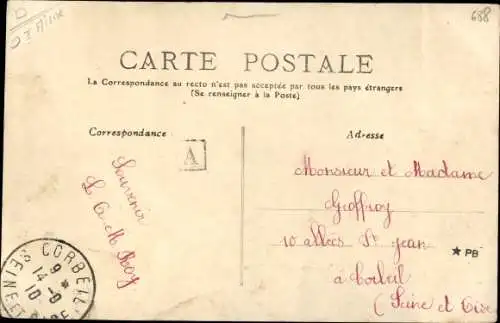 688
CARTE POSTALE
La Correspondance au recto n'est pas acceptée par tous les pays étrangers
(Se renseigner à la Poste)
Correspondance
Adresse
A
Souvenir
Monsieur et Madame
Geoffroy
10 allées St Jean
à Corbeil
(Seine et Oise
★ PB
CORBEIL
9 *
14 -9
10
SEINE ET OISE